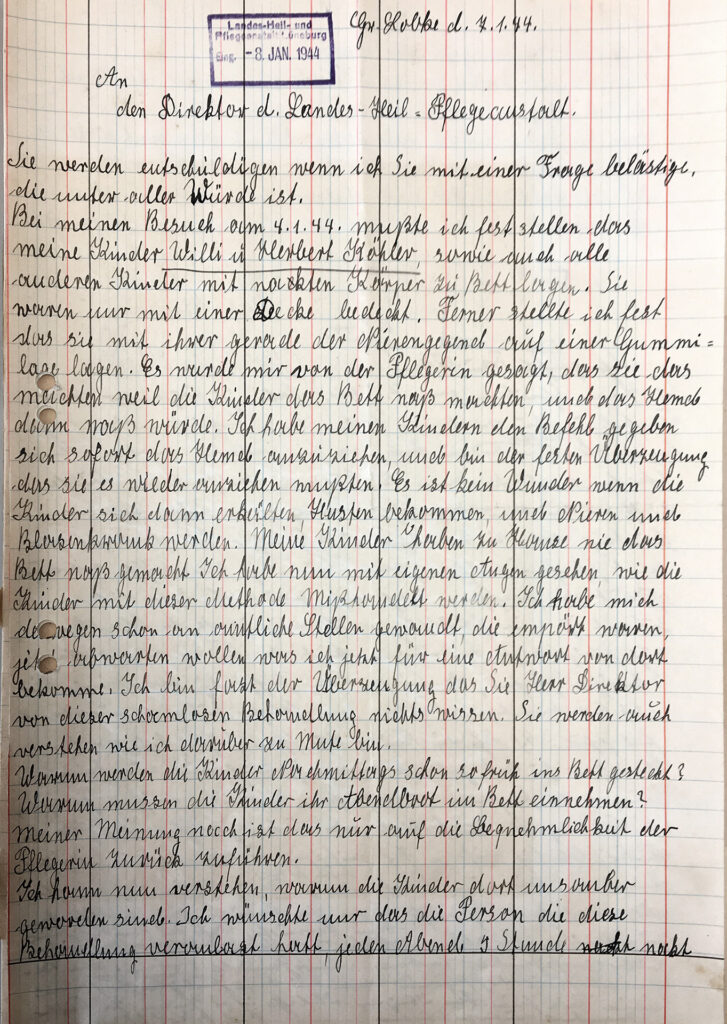 Gr. Holtke d. 7.1.44.
Landes-Heil- und
Pflegeanstalt Lüneburg
Eing. -8. JAN. 1944
An
den Direktor d. Landes-Heil = Pflegeanstalt.
Sie werden entschuldigen wenn ich Sie mit einer Frage belästige,
die unter aller Würde ist.
Bei meinen Besuch am 4.1.44. mußte ich fest stellen das
meine Kinder Willi u Herbert Köhler, sowie auch alle
anderen Kinder mit nackten Körper zu Bett lagen. Sie
waren nur mit einer Decke bedeckt. Ferner stellte ich fest
das sie mit ihrer gerade der Nierengegend auf einer Gummi=
lage lagen. Es wurde mir von der Pflegerin gesagt, das sie das
machten weil die Kinder das Bett naß machten, und das Hemd
dann naß würde. Ich habe meinen Kindern den Befehl gegeben
sich sofort das Hemd anzuziehen, und bin der festen Überzeugung
das sie es wieder ausziehen mußten. Es ist kein Wunder wenn die
Kinder sich dann erkälten, Husten bekommen, und Nieren und
Blasenkrank werden. Meine Kinder haben zu Hause nie das
Bett naß gemacht Ich habe nun mit eigenen Augen gesehen, wie die
Kinder mit dieser Methode Mißhandelt werden. Ich habe mich
deswegen schon an amtliche Stellen gewandt die empört waren,
jetzt abwarten wollen was ich jetzt für eine Antwort von dort
bekomme. Ich bin fast der Überzeugung das Sie Herr Direktor
von dieser schamlosen Behandlung nichts wissen. Sie werden auch
verstehen wie ich darüber zu Mute bin.
Warum werden die Kinder Nachmittags schon so früh ins Bett gesteckt?
Warum mussen die Kinder ihr Abendbrot im Bett einnehmen?
Meiner Meinung nach ist das nur auf die Beqnehmlichkeit der
Pflegerin zurück zuführen.
Ich kann nun verstehen, warum die Kinder dort unsauber
geworden sind. Ich wünschte nur das die Person die diese
Behandlung veranlast hatt, jeden Abend Stunde nackt